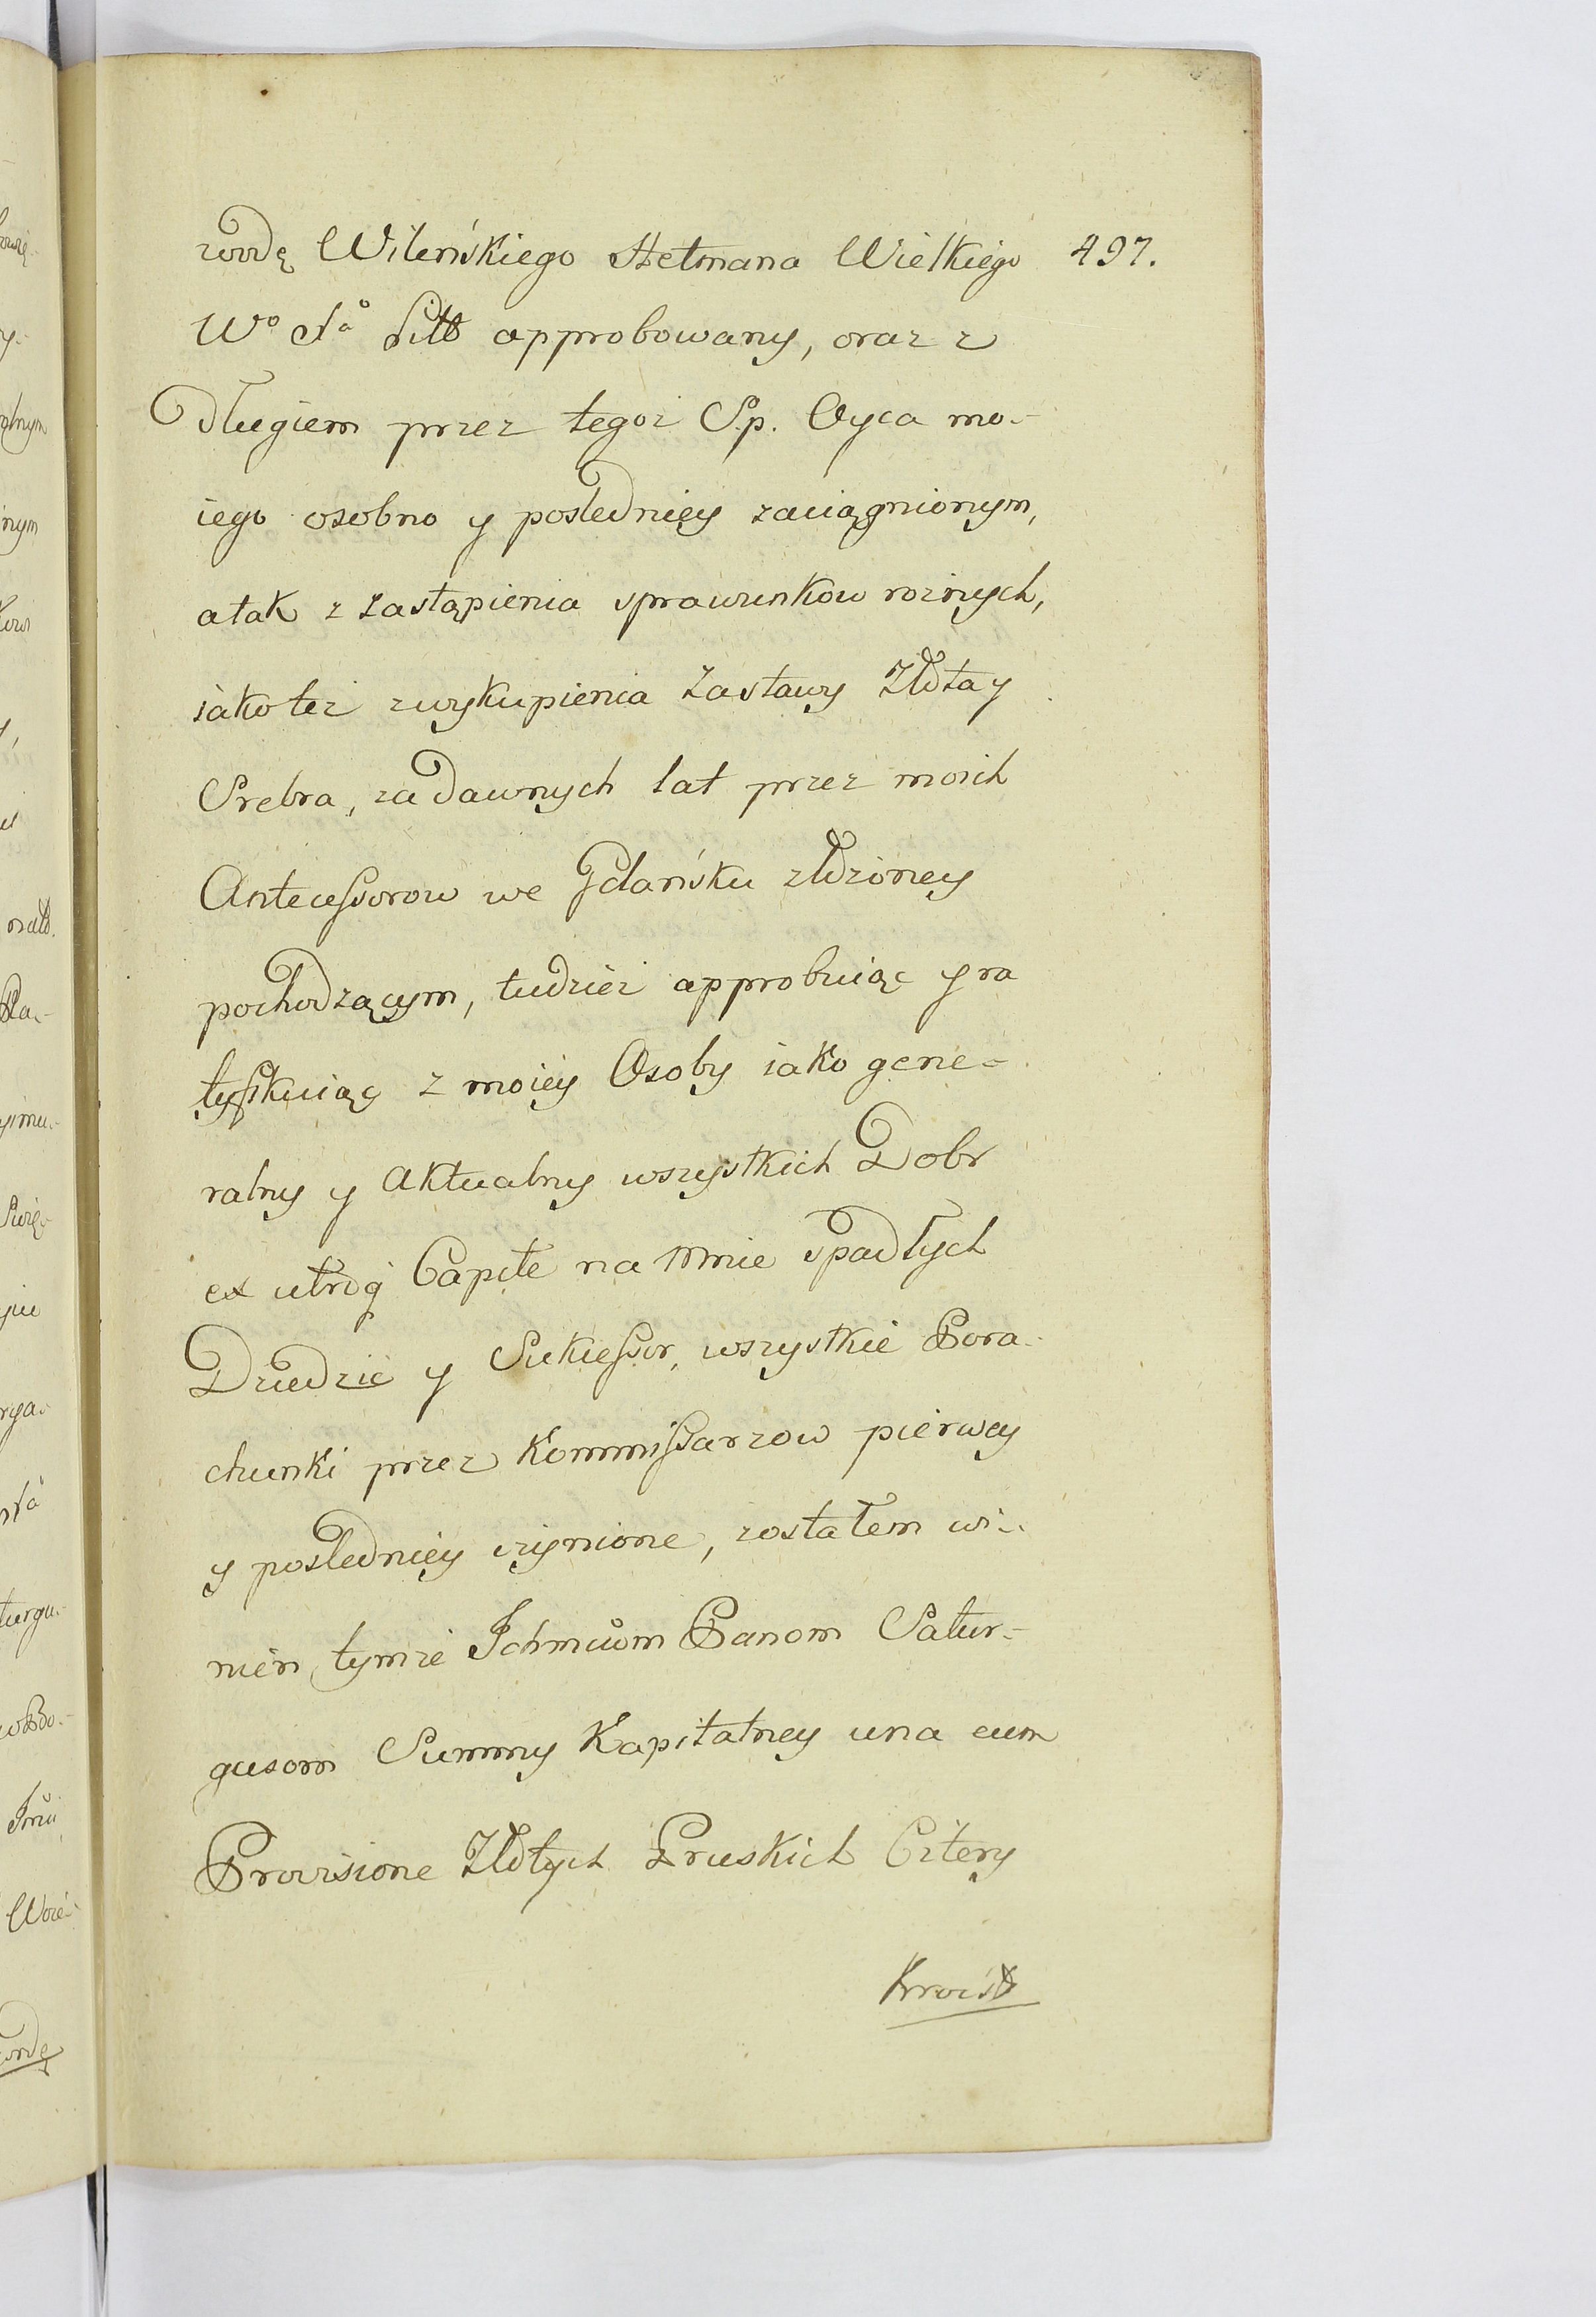 wodę Wileńskiego Hetmana Wielkiego 497.
Wo Xa Litt approbowany, oraz z
Długiem przez tegoz S.p. Oyca mo-
iego osobno y posledniey zaciągnionym,
atak z zastąpienia sprawunkow roznych,
iakotez zwykupienia Zastawy Złota y
Srebra, za dawnych lat przez moich
Antecessorow we Gdańsku złozoney
pochodzącym, tudziez approbuiąc y ra
tyfikuiąc z moiey Osoby iako gene-
ralny y Aktualny wszystkich Dobr
ex utroq Capite na mnie spadłych
Dziedzic y Sukcessor, wszystkie Pora-
chunki przez Kommissarzow pierwey
y posledniey czynione, zostałem wi-
nien, tymze Ichmciom Panom Satur-
gusom Summy Kapitalney una cum
Provisione Złotych Pruskich Cztery
Kroisto